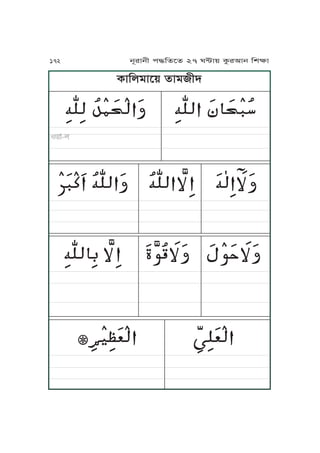 ১৭২ নূরানী পদ্ধতিতে ২৭ ঘন্টায় কুরআন শিক্ষা
কালিমায়ে তামজীদ
سُبْحَانَ اللّٰهِ وَالْحَمْدُ لِلّٰهِ
وَلَآاِلٰهَ اِلَّااللّٰهُ وَاللّٰهُ اَكْبَرُ
وَلَاحَوْلَ وَلَاقُوَّةَ اِلَّا بِاللّٰهِ
الْعَلِىِّ الْعَظِيْمِ